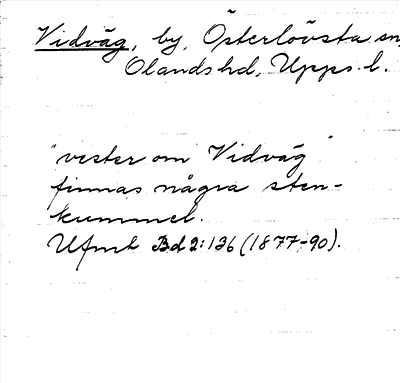 Vidväg, by, Österlövsta sn,
Olands hd, Upps. l.
"vester om Vidväg"
finnas några sten-
kummel.
Ufmt Bd 2:136 (1877-90).